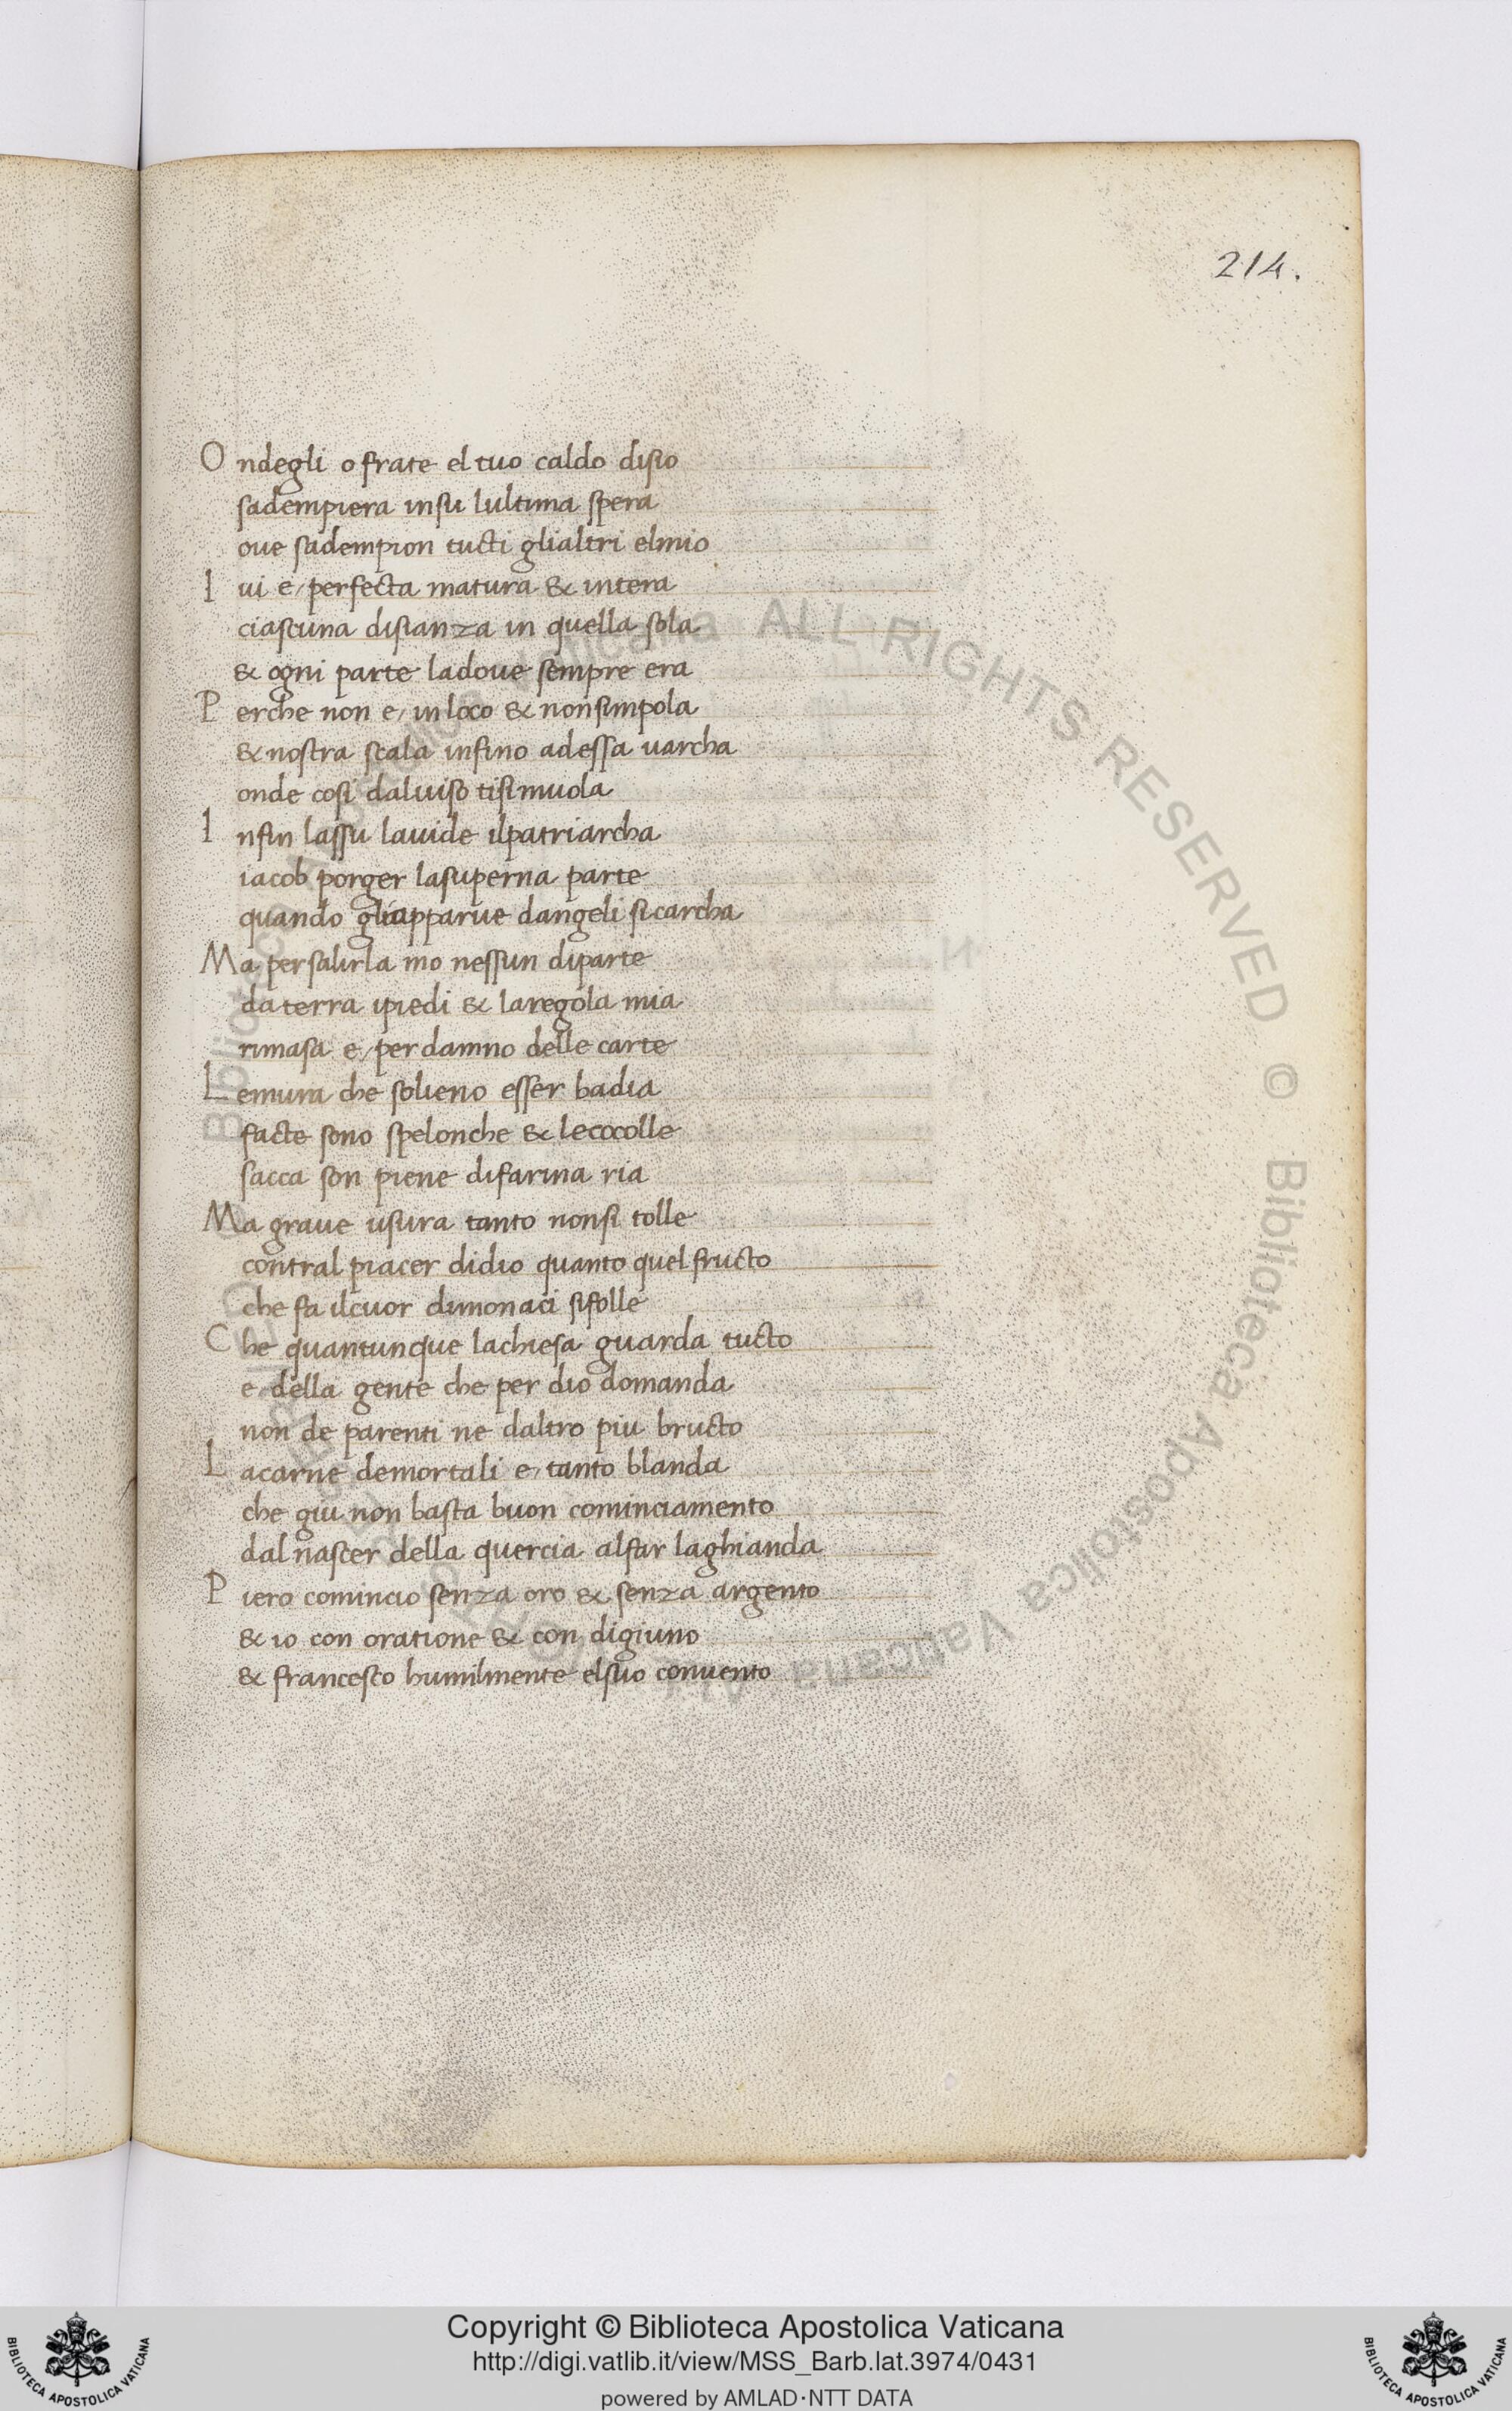 214.
Ondegli o frate el tuo caldo disio
sadempiera insu lultima spera
oue sadempion tucti glialtri elmio
Iui e/ perfecta matura & intera
ciascuna disianza in quella sola
& ogni parte ladoue sempre era
Perche non e/ in loco & nonsimpola
& nostra scala infino adessa uarcha
onde cosi daluiso tisimuola
Infin lassu lauide ilpatriarcha
iacob porger lasuperna parte
quando gliapparue dangeli sicarcha
Ma persalirla mo nessun diparte
da terra ipiedi & laregola mia
rimasa e/ per damno delle carte
Lemura che solieno esser badia
facte sono spelonche & lecocolle
sacca son piene difarina ria
Ma graue usura tanto nonsi tolle
contral piacer didio quanto quel fructo
che fa ilcuor dimonaci sifolle
Che quantunque lachiesa guarda tucto
e/ della gente che per dio domanda
non de parenti ne daltro piu bructo
Lacarne demortali e/ tanto blanda
che giu non basta buon cominciamento
dal nascer della quercia alfar laghianda
Piero comincio senza oro & senza argento
& io con oratione & con digiuno
& francesco humilmente elsuo conuento
Biblioteca Apostolica Vaticana ALL RIGHTS RESERVED © Biblioteca Apostolica Vaticana
Copyright © Biblioteca Apostolica Vaticana
http://digi.vatlib.it/view/MSS_Barb.lat.3974/0431
powered by AMLAD·NTT DATA
BIBLIOTECA APOSTOLICA VATICANA
BIBLIOTECA APOSTOLICA VATICANA